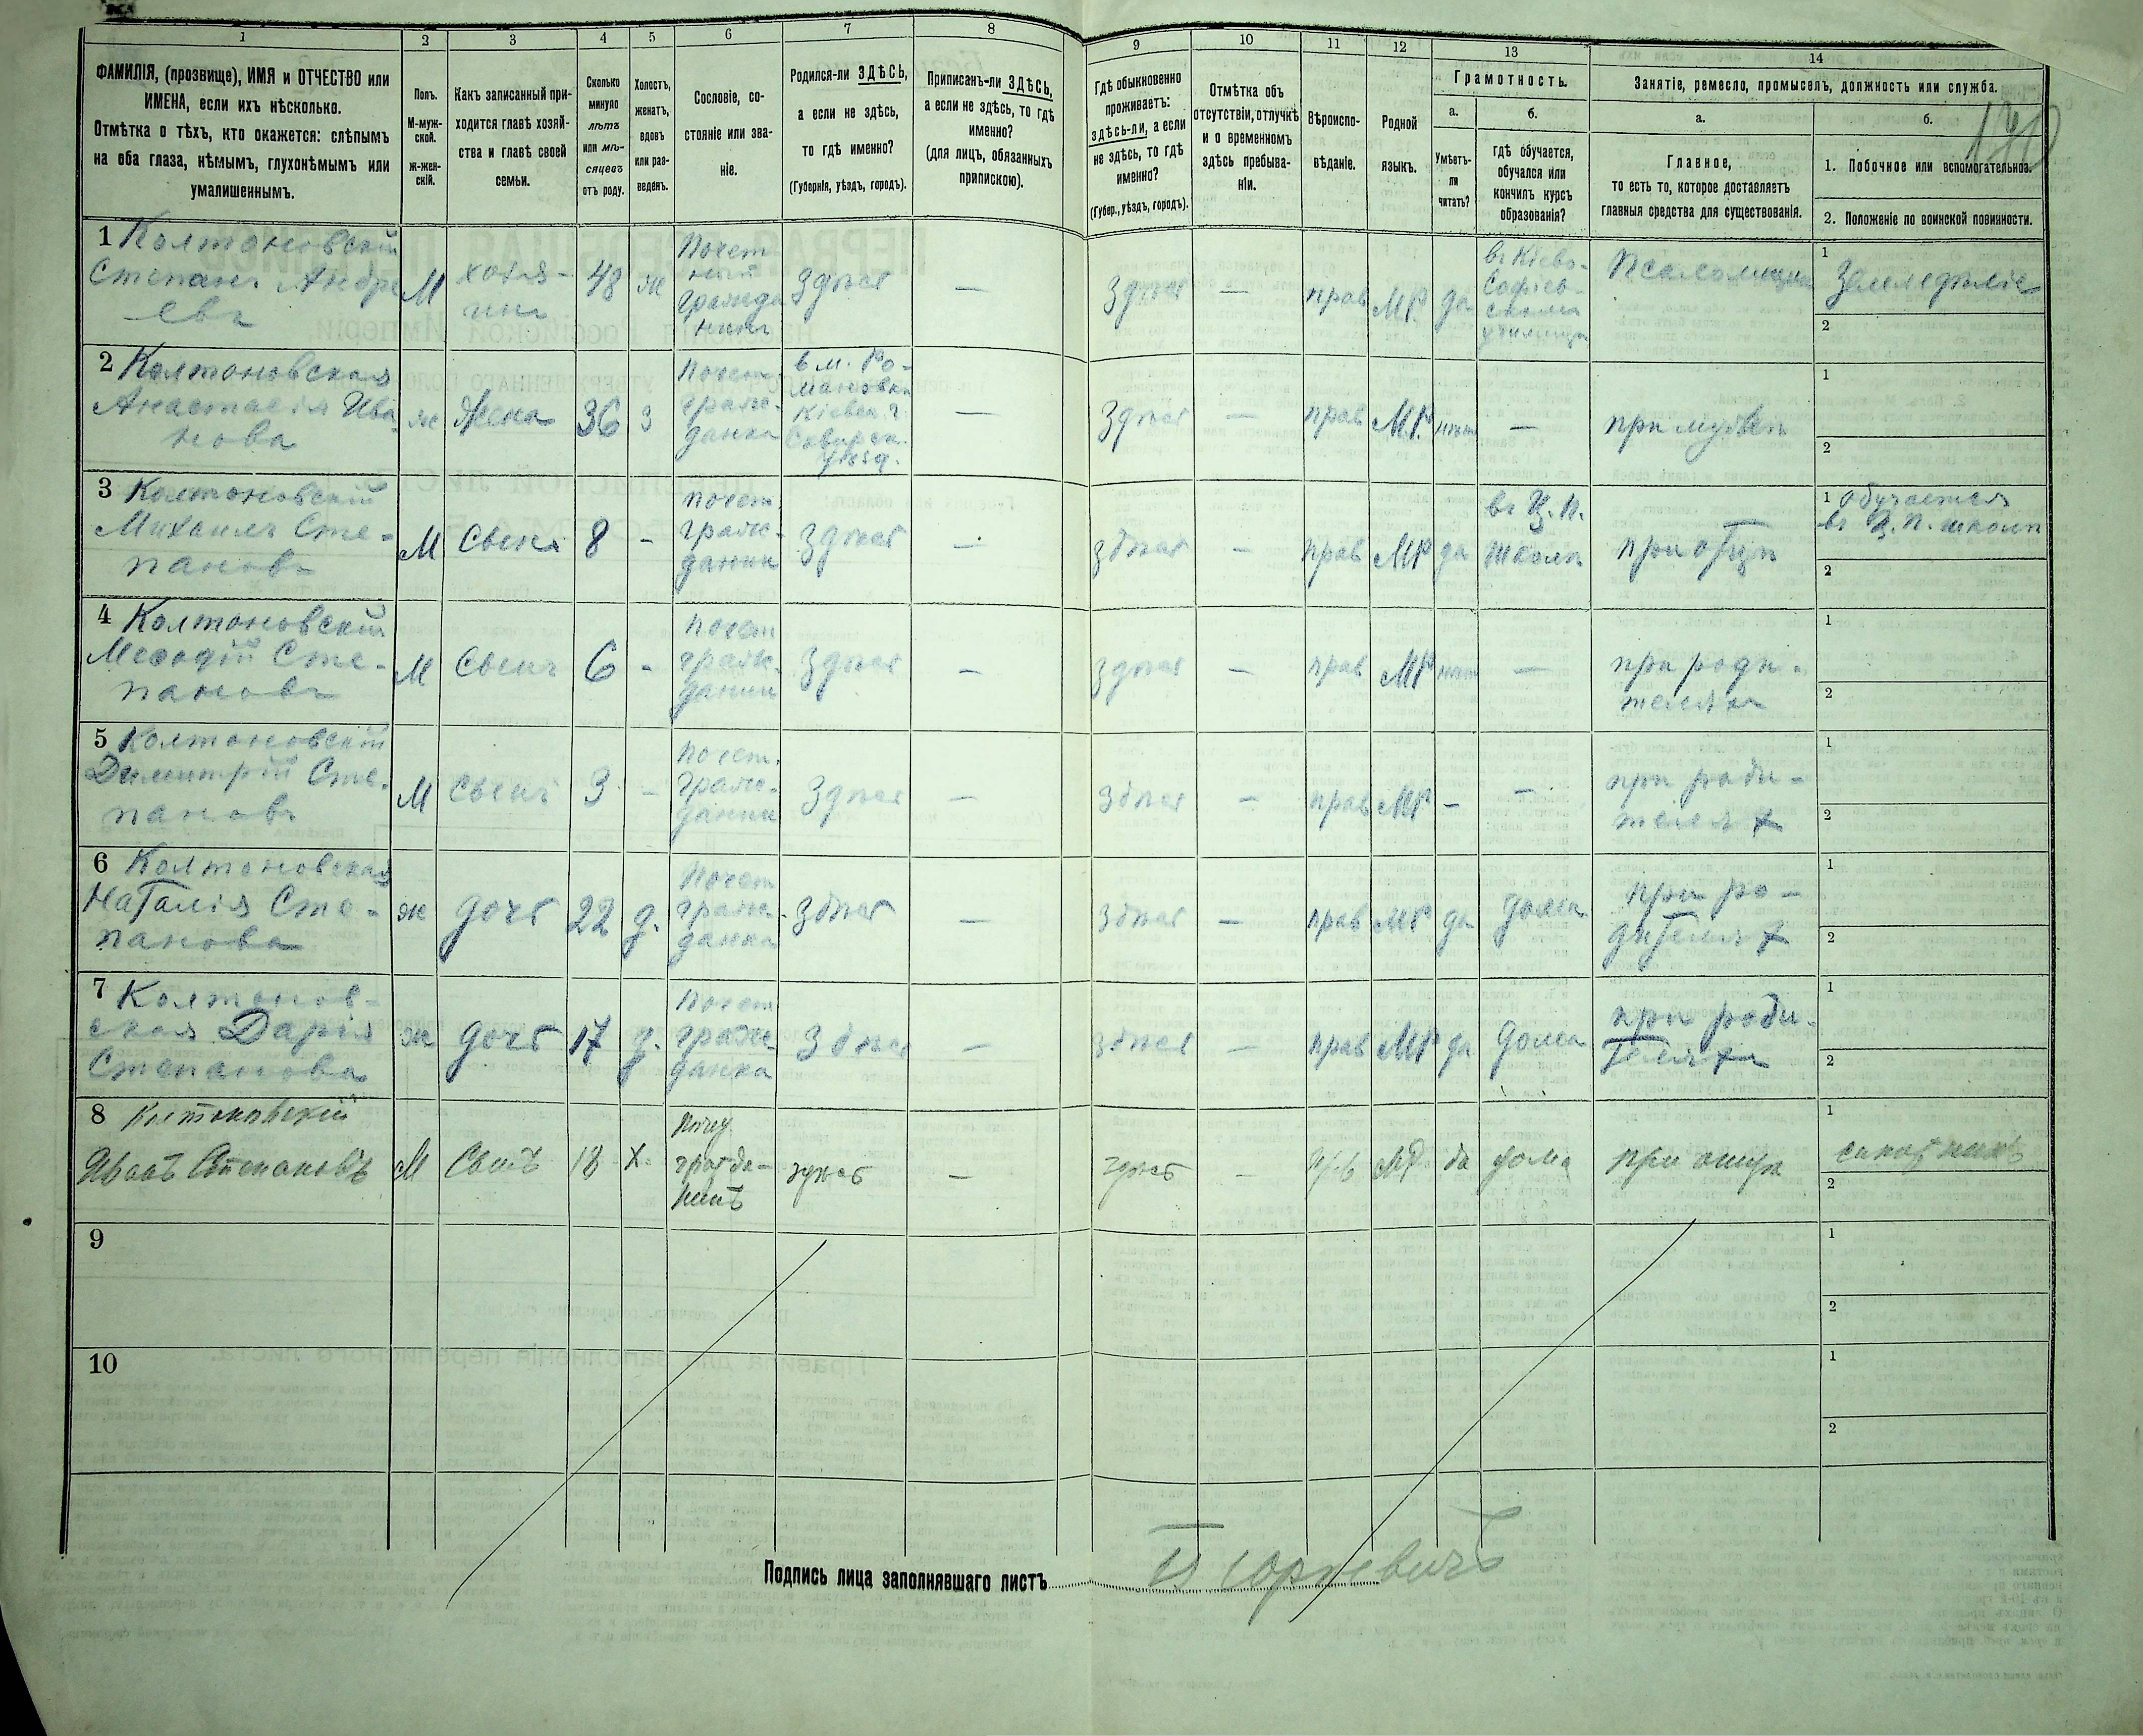 1
2
3
4
5
6
7
8
9
10
11
12
13
14
ФАМИЛІЯ, (прозвище), ИМЯ и ОТЧЕСТВО или
ИМЕНА, если ихъ нѣсколько.
Отмѣтка о тѣхъ, кто окажется: слѣпымъ
на оба глаза, нѣмымъ, глухонѣмымъ или
умалишеннымъ.
Полъ.
М-муж-
ской.
ж-жен-
скій.
Какъ записанный при-
ходится главѣ хозяй-
ства и главѣ своей
семьи.
Сколько
минуло
лѣтъ
или мѣ-
сяцевъ
отъ роду.
Холостъ,
женатъ,
вдовъ
или раз-
веденъ.
Сословіе, со-
стояніе или зва-
ніе.
Родился-ли ЗДѢСЬ,
а если не здѣсь,
то гдѣ именно?
(Губернія, уѣздъ, городъ).
Приписанъ-ли ЗДѢСЬ,
а если не здѣсь, то гдѣ
именно?
(для лицъ, обязанныхъ
припискою).
Гдѣ обыкновенно
проживаетъ:
здѣсь-ли, а если
не здѣсь, то гдѣ
именно?
(Губер., уѣздъ, городъ).
Отмѣтка объ
отсутствіи, отлучкѣ
и о временномъ
здѣсь пребыва-
ніи.
Вѣроиспо-
вѣданіе.
Родной
языкъ.
Грамотность.
а.
Умѣетъ-
ли
читать?
б.
гдѣ обучается,
обучался или
кончилъ курсъ
образованія?
Занятіе, ремесло, промыселъ, должность или служба.
а.
Главное,
то есть то, которое доставляетъ
главныя средства для существованія.
б.
1. Побочное или вспомогательное.
2. Положеніе по воинской повинности.
1 Колтоновскій
Степанъ Андре
евъ
М
хозя-
инъ
48
ж
Почет
ный
гражда
нинъ
здѣсь
—
здѣсь
—
прав
МР
да
въ Кіево-
Софіев-
скомъ
училищѣ
Псаломщикъ
1 Земледѣліе
2
2 Колтоновская
Анастасія Ива
нова
ж
Жена
36
з
Почет.
граж-
данка
в м. Ро-
мановкѣ
Кіевск. г.
Сквирск.
уѣзд.
—
здѣсь
—
прав
М.Р.
нѣтъ
—
при мужѣ
1
2
3 Колтоновскій
Михаилъ Сте-
пановъ
М
Сынъ
8
-
почет.
граж-
данин
здѣсь
—
здѣсь
-
прав
МР
да
въ Ц. П.
школѣ
при отцѣ
1 обучается
въ Ц. П. школѣ
2
4 Колтоновскій
Меѳодій Сте-
пановъ
М
Сынъ
6
-
почет
граж-
данин
здѣсь
-
здѣсь
-
прав
МР
нѣтъ
—
при роди-
теляхъ
1
2
5 Колтоновскій
Димитрій Сте-
пановъ
М
Сынъ
3
-
почет.
граж-
данин
здѣсь
-
здѣсь
-
прав
МР
-
-
при роди-
телях
1
2
6 Колтоновская
Наталія Сте-
панова
ж
дочь
22
д.
Почет
граж-
данка
здѣсь
—
здѣсь
—
прав
МР
да
дома
при ро-
дителях
1
2
7 Колтонов-
ская Дарія
Степанова
ж
дочь
17
д.
Почет
граж
данка
здѣсь
—
здѣсь
—
прав
МР
да
дома
при роди-
теляхъ
1
2
8 Колтоновскій
Иванъ Степановъ
М
Сынъ
18
Х.
граждa-
нинъ
здѣсь
—
здѣсь
-
МР
да
дома
при отцѣ
1 сапожникъ
2
9
1
2
10
1
2
Подпись лица заполнявшаго листъ